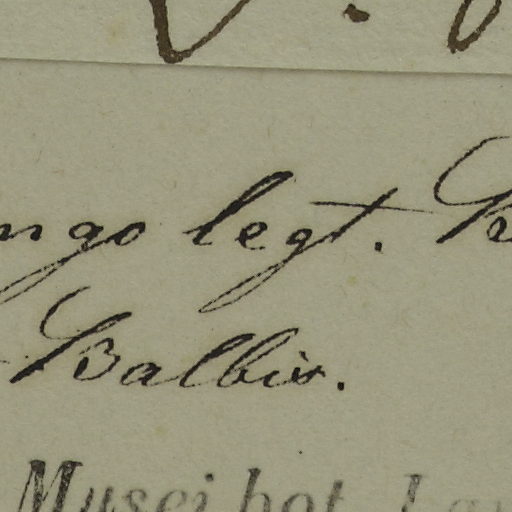 ngo legt. B
Balbis.
Musei bot. L